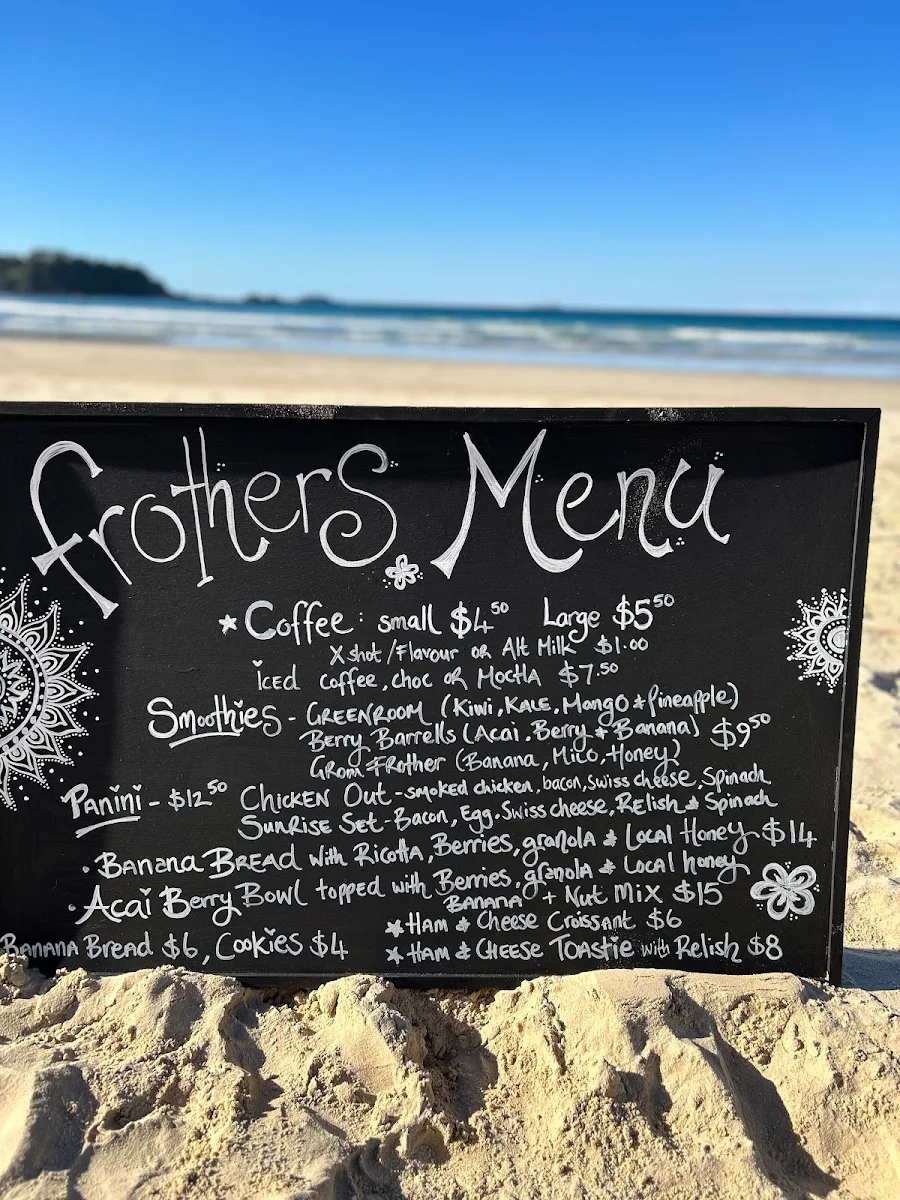 frothers Menu
Coffee: small $4.50 Large $5.50
X shot/Flavour or Alt Milk $1.00
iced coffee, choc or Mocha $7.50
Smoothies - GREENROOM (Kiwi, KALE, Mango & Pineapple)
Berry Barrells (Acai, Berry & Banana) $9.50
Grom Frother (Banana, Milo, Honey)
Panini - $12.50 Chicken Out - smoked chicken, bacon, Swiss cheese, Spinach
Sunrise Set - Bacon, Egg, Swiss cheese, Relish & Spinach
• Banana BREAD with Ricotta, Berries, granola & Local Honey $14
• Acai Berry Bowl topped with Berries, granola & Local honey
BANANA + Nut Mix $15
Ham & Cheese Croissant $6
Banana Bread $6, Cookies $4
Ham & CHEESE Toastie with Relish $8